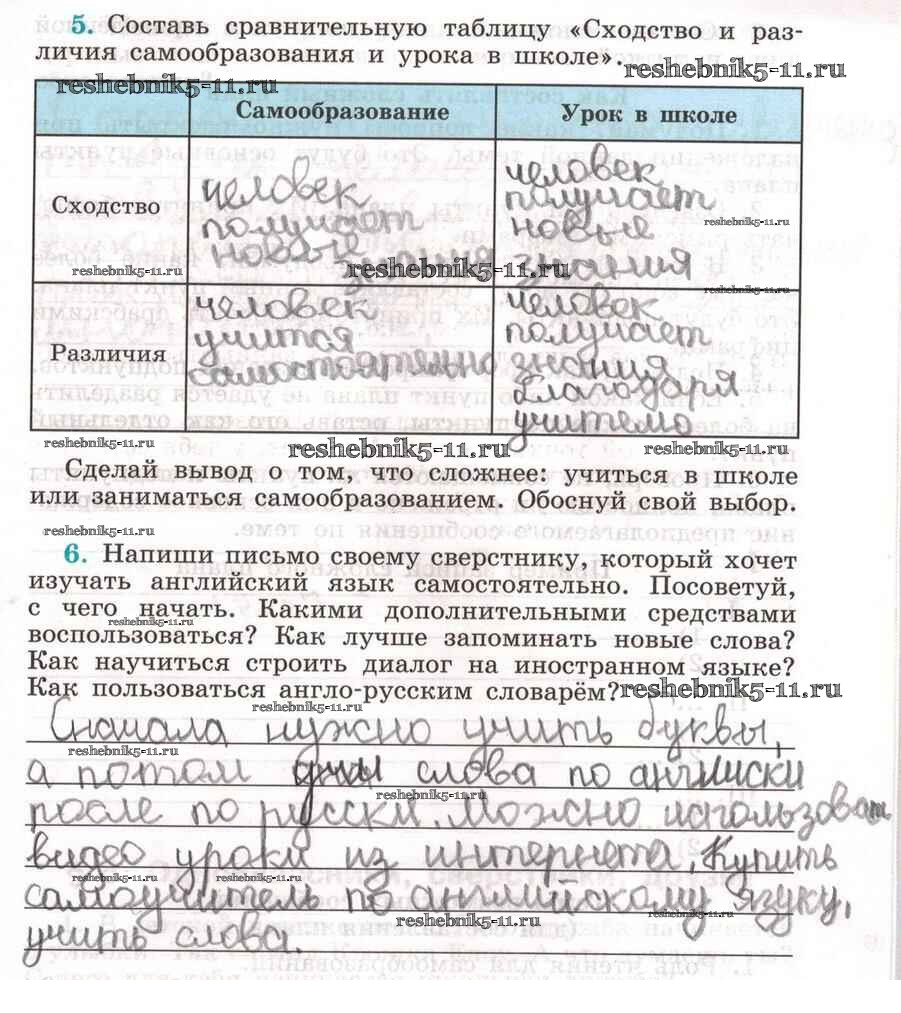 5. Составь сравнительную таблицу «Сходство и раз-
личия самообразования и урока в школе».
reshebnik5-11.ru
reshebnik5-11.ru
Самообразование
Урок в школе
Сходство
человек
получает
новые
знания
человек
получает
новые
знания
reshebnik5-11.ru
reshebnik5-11.ru
reshebnik5-11.ru
reshebnik5-11.ru
Различия
человек
учится
самостоятельно
человек
получает
знания
благодаря
учителю
reshebnik5-11.ru
reshebnik5-11.ru
reshebnik5-11.ru
Сделай вывод о том, что сложнее: учиться в школе
или заниматься самообразованием. Обоснуй свой выбор.
reshebnik5-11.ru
reshebnik5-11.ru
6. Напиши письмо своему сверстнику, который хочет
изучать английский язык самостоятельно. Посоветуй,
с чего начать. Какими дополнительными средствами
reshebnik5-11.ru
воспользоваться? Как лучше запоминать новые слова?
Как научиться строить диалог на иностранном языке?
Как пользоваться англо-русским словарём?
reshebnik5-11.ru
reshebnik5-11.ru
Сначала нужно учить буквы,
reshebnik5-11.ru
а потом слова по англиски
reshebnik5-11.ru
после по русски. Можно использоват
видео уроки из интернета. Купить
reshebnik5-11.ru
reshebnik5-11.ru
самоучитель по английскому языку,
reshebnik5-11.ru
reshebnik5-11.ru
учить слова.